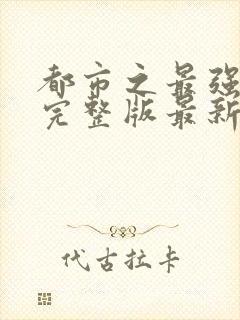 都市之最强
完整版最新
代古拉卡